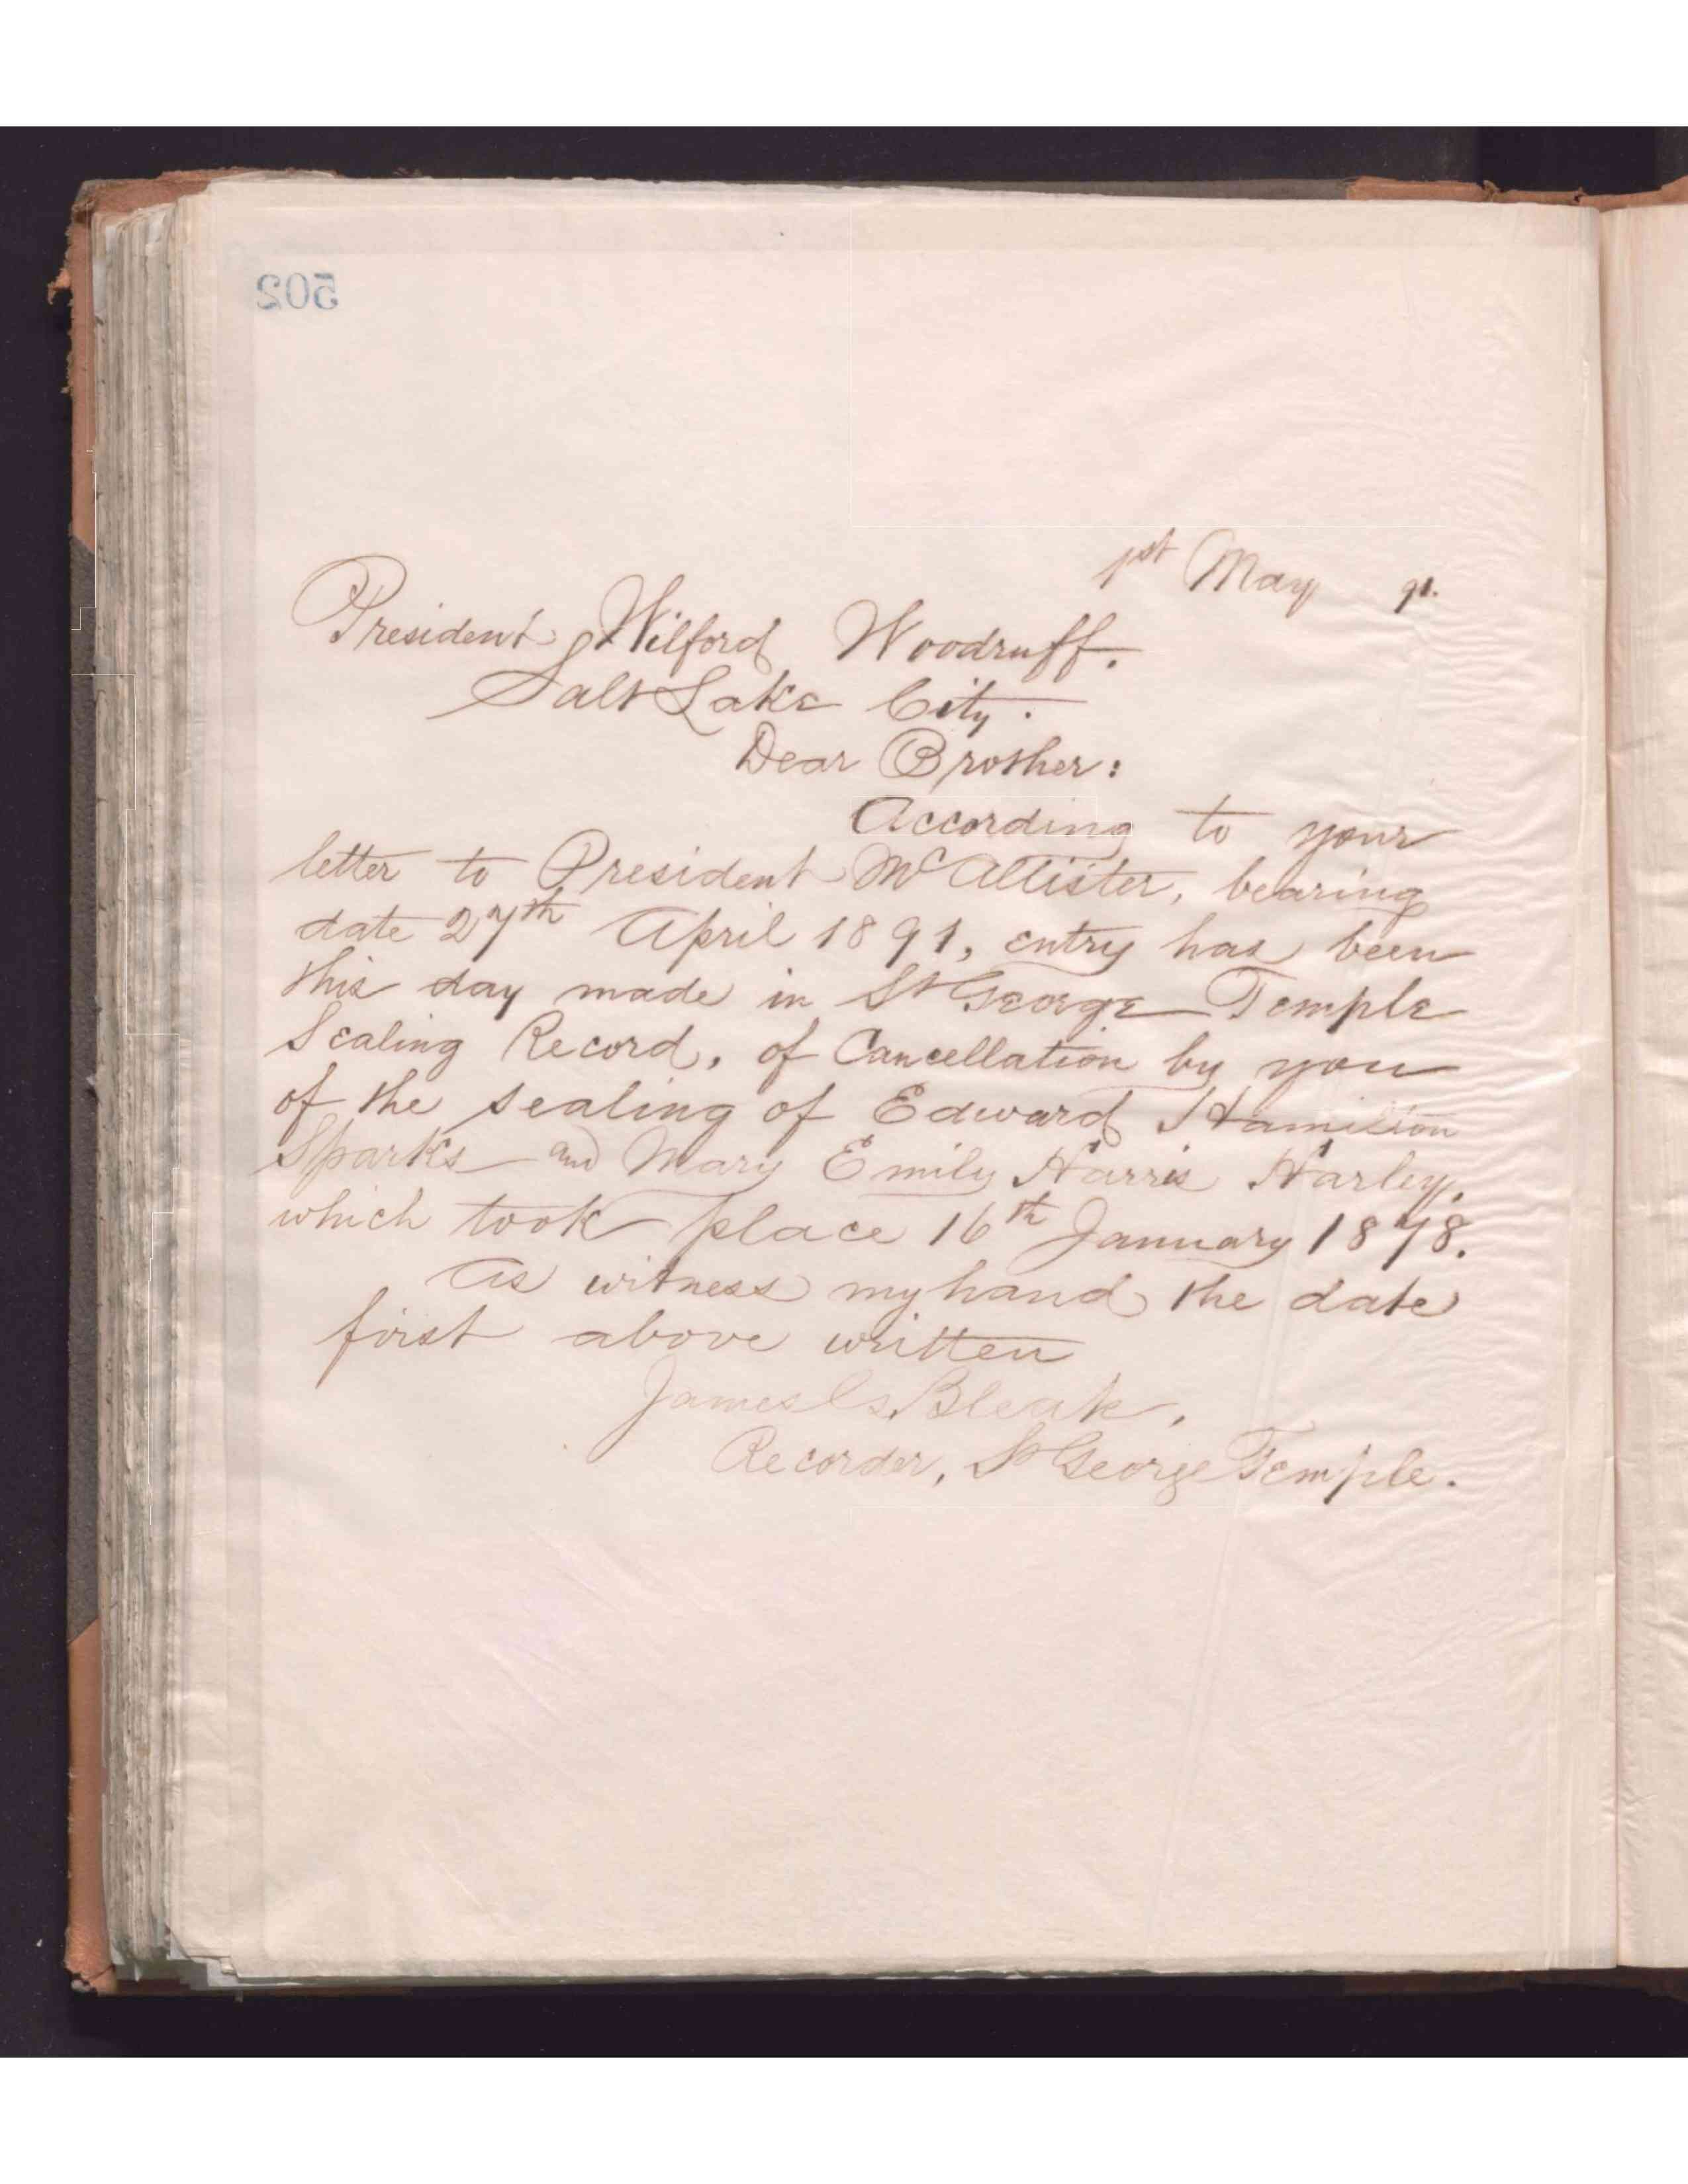 502
1st May 91.
President Wilford Woodruff.
Salt Lake City.
Dear Brother:
According to your
letter to President McAllister, bearing
date 27th April 1891, entry has been
this day made in St George Temple
Sealing Record, of Cancellation by you
of the sealing of Edward Hamilton
Sparks and Mary Emily Harris Harley,
which took place 16th January 1878.
As witness my hand the date
first above written
James G. Bleak,
Recorder, St George Temple.